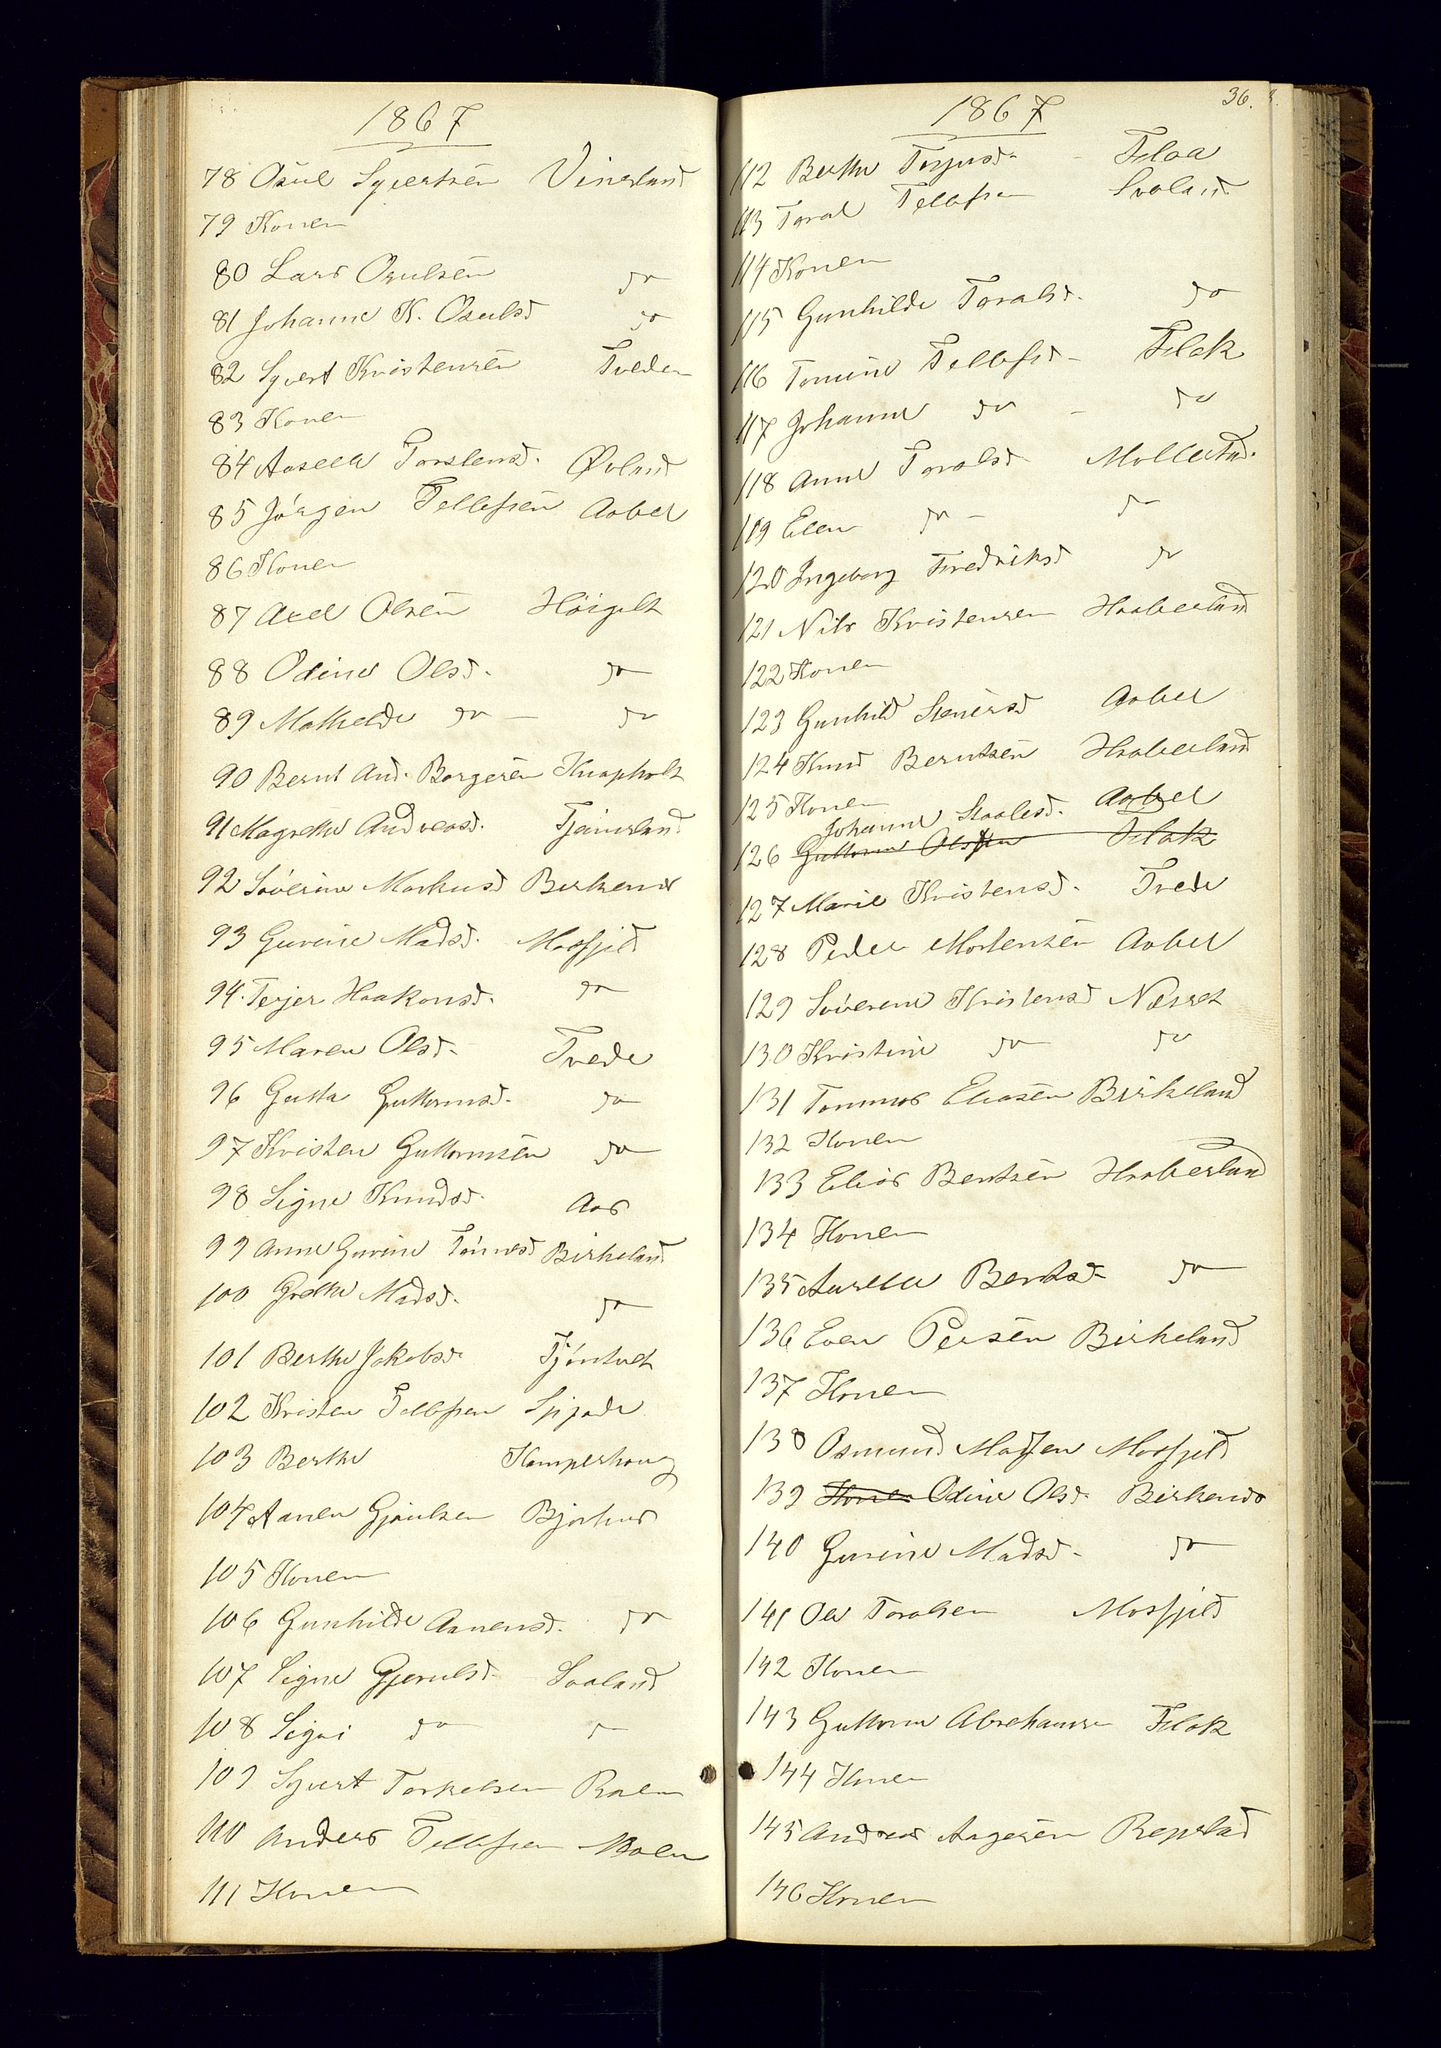 1867
78 Osul Syvertsen Vinesland
79 Konen
80 Lars Osulsen do
81 Johanne K. Osulsd do
82 Syvert Kristensen Tveden
83 Konen
84 Aaselle Torstensd. Øvland
85 Jörgen Tellefsen Aabel
86 Konen
87 Axel Olsen Höigilt
88 Odine Olsd. do
89 Mathelde do - do
90 Bernt And. Borgesen Knapholt
91 Magrethe Andreasd. Tjömsland
92 Söverine Markusd Birkenes
93 Gurine Madsd. Mosfjeld
94. Terjer Haakonsd. do
95 Maren Olsd. Tvede
96 Gutta Guttormsd. do
97 Kristen Guttormsen do
98 Signe Knudsd. Aas
99 Anne Gurine Tönnesd Birkeland
100 Grethe Madsd. do
101 Berthe Jakobsd Tjöntvet
102 Kristen Tellefsen
103 Berthe Kamperhoug
104 Aanen Gjeruldsen
105 Konen
106 Gunhilde Aanensd. do
107 Signe Gjerulsd. Svaland
108 Sigri do do
109 Syvert Torkelsen Roen
110 Anders Tellefsen Moen
111 Konen
36.
1867
112 Berthe Terjusd - Flaa
113 Toral Tellefsen Svaland
114 Konen
115 Gunhilde Toralsd. do
116 Tomine Tellefsd - Flak
117 Johanne do - do
118 Anne Toralsd Mollestad.
119 Elen do - do
120 Ingeborg Fredriksd do
121 Nils Kristensen Haaberland
122 Konen
123 Gunhild Stenersd Aabel
124 Knud Berntsen Haaberland
125 Konen
Johanne Staalesd. Aabel
126 Guttorm Olsen Flak
127 Marie Kristensd. Tvede
128 Peder Mortensen Aabel
129 Söverine Kristensd Næset
130 Kristine do do
131 Tommas Eliasen Birkeland
132 Konen
133 Elias Bentsen Haaberland
134 Konen
135 Aaselle Bentsd do
136 Even Persen Birkeland
137 Konen
138 Osmund Madsen Mosfjeld
139 Konen Odine Olsd. Birkenes
140 Gurine Madsd - do
141 Ole Toralsen Mosfjeld
142 Konen
143 Guttorm Abrahamsen Flak
144 Konen
145 Andreas Aagesen Repstad
146 Konen